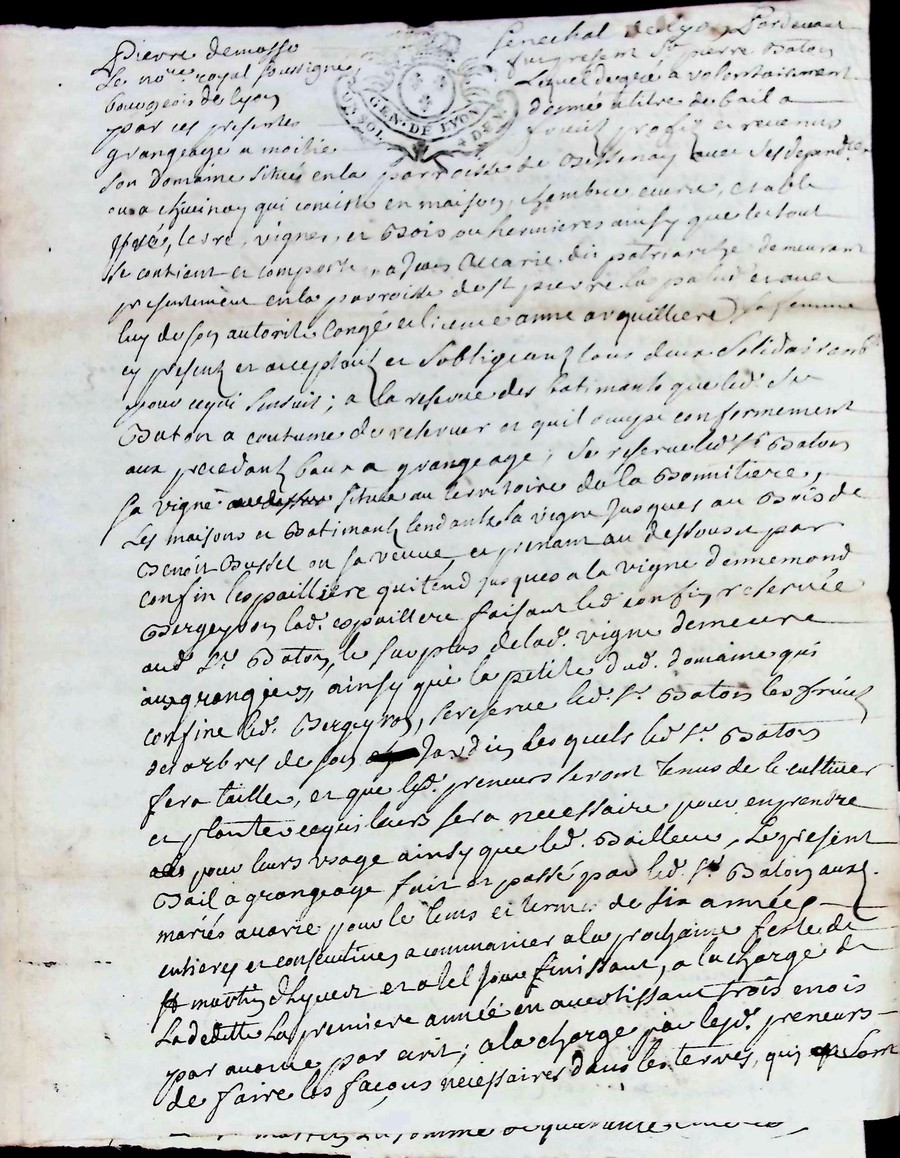 Pierre demosse Senechal de Lyon Pardevant
Le nore. royal soussigné fut present Sr. pierre Baton
bourgeois de Lyon Lequel de gré a volontairement
par ces presentes donné a titre de bail a
grangeage a moitié fruits profits et revenus
GEN. DE LYON
son Domaine situés en la parroisse de Bessenay avec ses dependces.
qui consiste en maison, chambre, cuvre, etable
prés, terre, vignes, et Bois ou hermières ainsy que le tout
se contient et comporte, a Jean accarie dit patriarche demeurant
presentement en la parroisse de st pierre la palud et avec
luy de son autorité congé et licence anne arquilliere sa femme
cy presents et acceptants et s'obligeants tous deux solidairemt.
pour ce qui s'ensuit; a la reserve des batiments que led. Sr
Baton a coutume de reserver et quil occupe conformement
aux precedants baux a grangeage, se reserve led. Sr Baton
sa vigne située au territoire de la Bonnitiere,
Les maisons et Batiments tendants la vigne jusques au Bois de
Benoit Bussel ou sa veuve, et prenant au dessous par
confin l'espailliere qui tend jusques a la vigne d'ennemond
Bergeyron lad. espailliere faisant led. confin reservée
aud. Sr. Baton, le surplus de lad. vigne demeure
aux grangers, ainsy que la petite dud. domaine qui
confine led. Bergeyron, se reserve led. Sr. Baton les fruits
des arbres de son Jardin lesquels led. Sr. Baton
fera taille, et que lesd. preneurs seront tenus de le cultiver
et planter ce qui leurs sera necessaire pour en prendre
pour leurs usage ainsy que led. Bailleur, Le present
Bail a grangeage fait et passé par led. Sr. Baton auxd.
mariés accarie pour le tems et terme de six années
entieres et consecutives a commancer a la prochaine feste de
st martin d'hyver et a tel jour finissant, a la charge de
La deditte La premiere année en avertissant trois mois
par avance par ecrit; a la charge par lesd. preneurs
de faire les façons necessaires dans les terres, qui sont
martin La somme de quarante